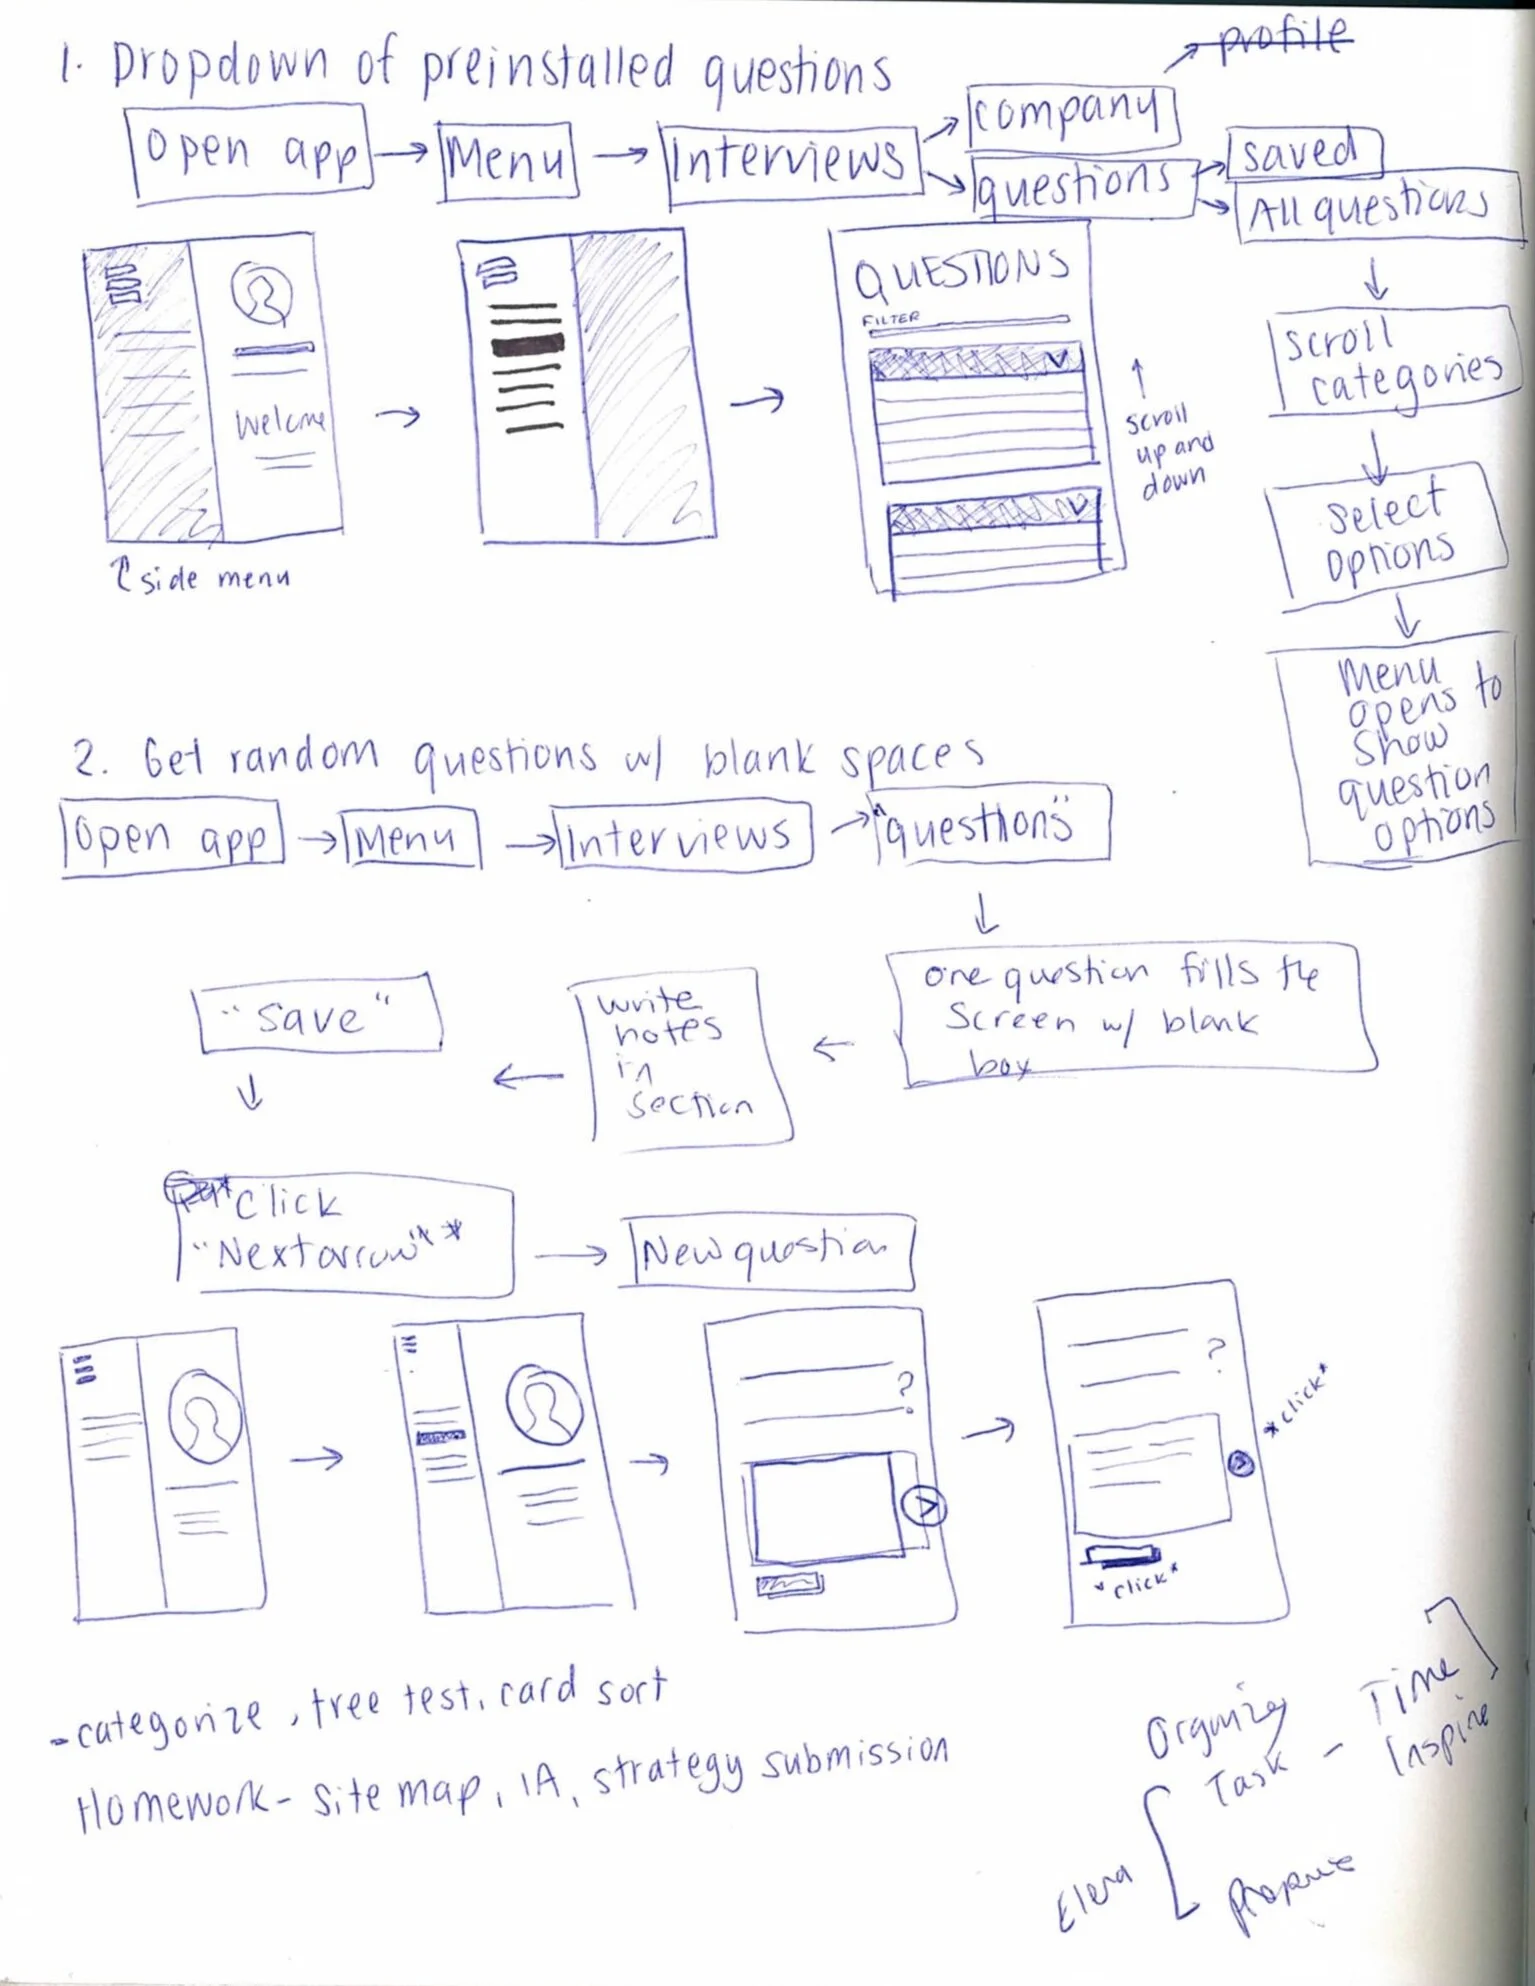 profile
1. Dropdown of preinstalled questions
Open app
Menu
Interviews
company
questions
saved
All questions
scroll
categories
select
options
Menu
opens to
show
question
options
QUESTIONS
FILTER
scroll
up and
down
Welcome
side menu
2. Get random questions w/ blank spaces
Open app
Menu
Interviews
"questions"
one question fills the
screen w/ blank
box
write
notes
in
section
"save"
Click
"Next arrow" *
New question
?
?
*click*
*click*
-categorize, tree test, card sort
Homework- site map, IA, strategy submission
Organize
Task - Time
Inspire
Elena
Prepare